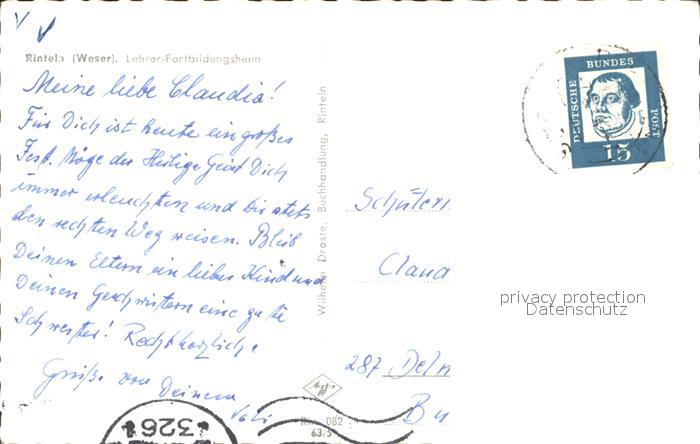 Rinteln (Weser). Lehrer-Fortbildungsheim
Meine liebe Claudia!
Für Dich ist heute ein großes
Fest. Möge der Heilige Geist Dich
immer erleuchten und Dir stets
den rechten Weg weisen. Bleib
Deinen Eltern ein liebes Kind und
Deinen Geschwistern eine gute
Schwester! Recht herzliche
Grüße von Deinem
Wilhelm Droste, Buchhandlung, Rinteln
DEUTSCHE BUNDES POST
15
Schülerin
Claud
287 Delm
privacy protection
Datenschutz
082
63/5
3261